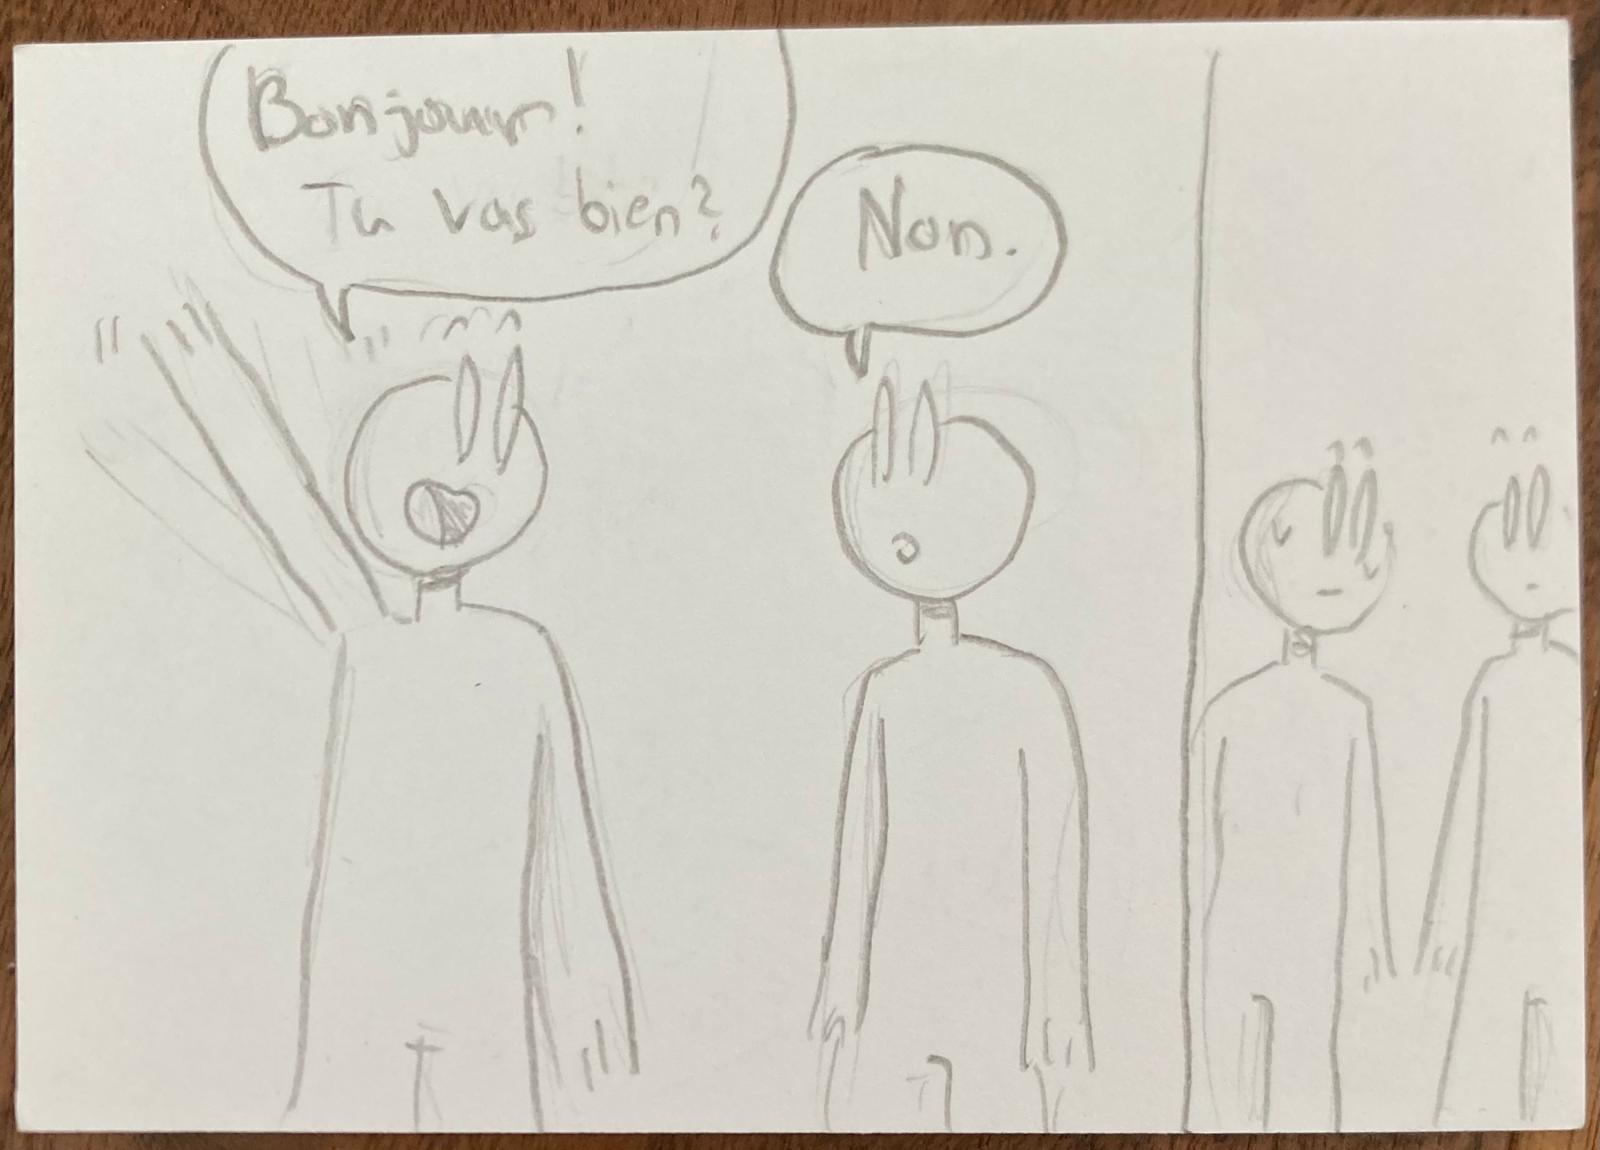 Bonjour!
Tu vas bien?
Non.